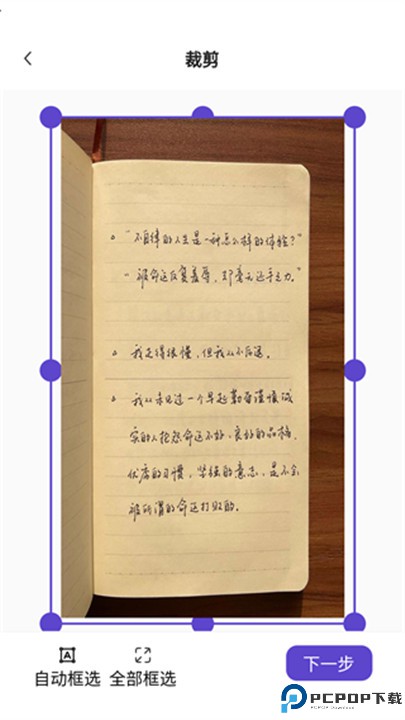 裁剪
。“不自律的人生是一种怎么样的体验?”
- 被命运反复羞辱，却毫无还手之力。”
。我走得很慢，但我从不后退。
。我从未见过一个早起勤奋谨慎诚
实的人抱怨命运不好、良好的品格、
优秀的习惯、坚强的意志、是不会
被所谓的命运打败的。
自动框选 全部框选
下一步
PCPOP下载
PCPOP Download